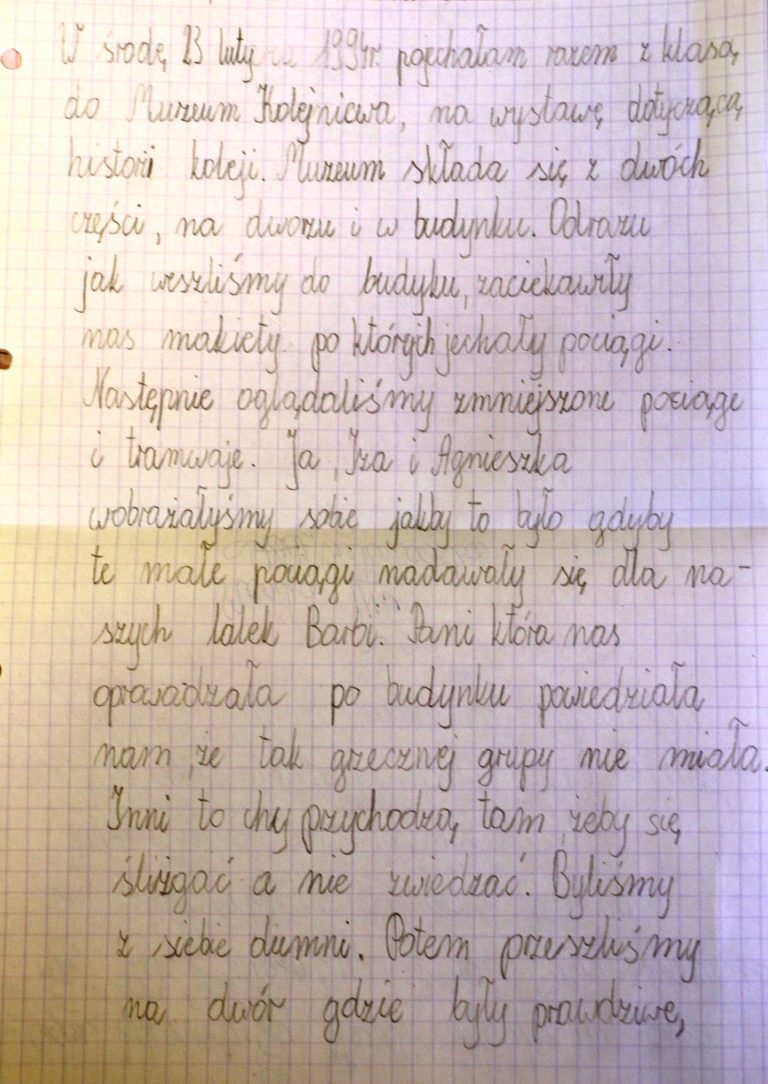 W środę 23 lutyra 1994r. pojechałam razem z klasą,
do Muzeum Kolejnicwa, na wystawę dotyczącą
histori koleji. Muzeum składa się z dwóch
części, na dworzu i w budynku. Odrazu
jak weszliśmy do budyku, zaciekawiły
nas makiety po których jechały pociągi.
Następnie oglądaliśmy zmniejszone pociąge
i tramwaje. Ja, Iza i Agnieszka
wobrażałyśmy sobie jakby to było gdyby
te małe pociągi nadawały się dla na-
szych lalek Barbi. Pani która nas
oprowadzała po budynku powiedziała
nam, że tak grzecznej grupy nie miała.
Inni to chy przychodzą tam, żeby się
ślizgać a nie zwiedzać. Byliśmy
z siebie dumni. Potem przeszliśmy
na dwór gdzie były prawdziwe,